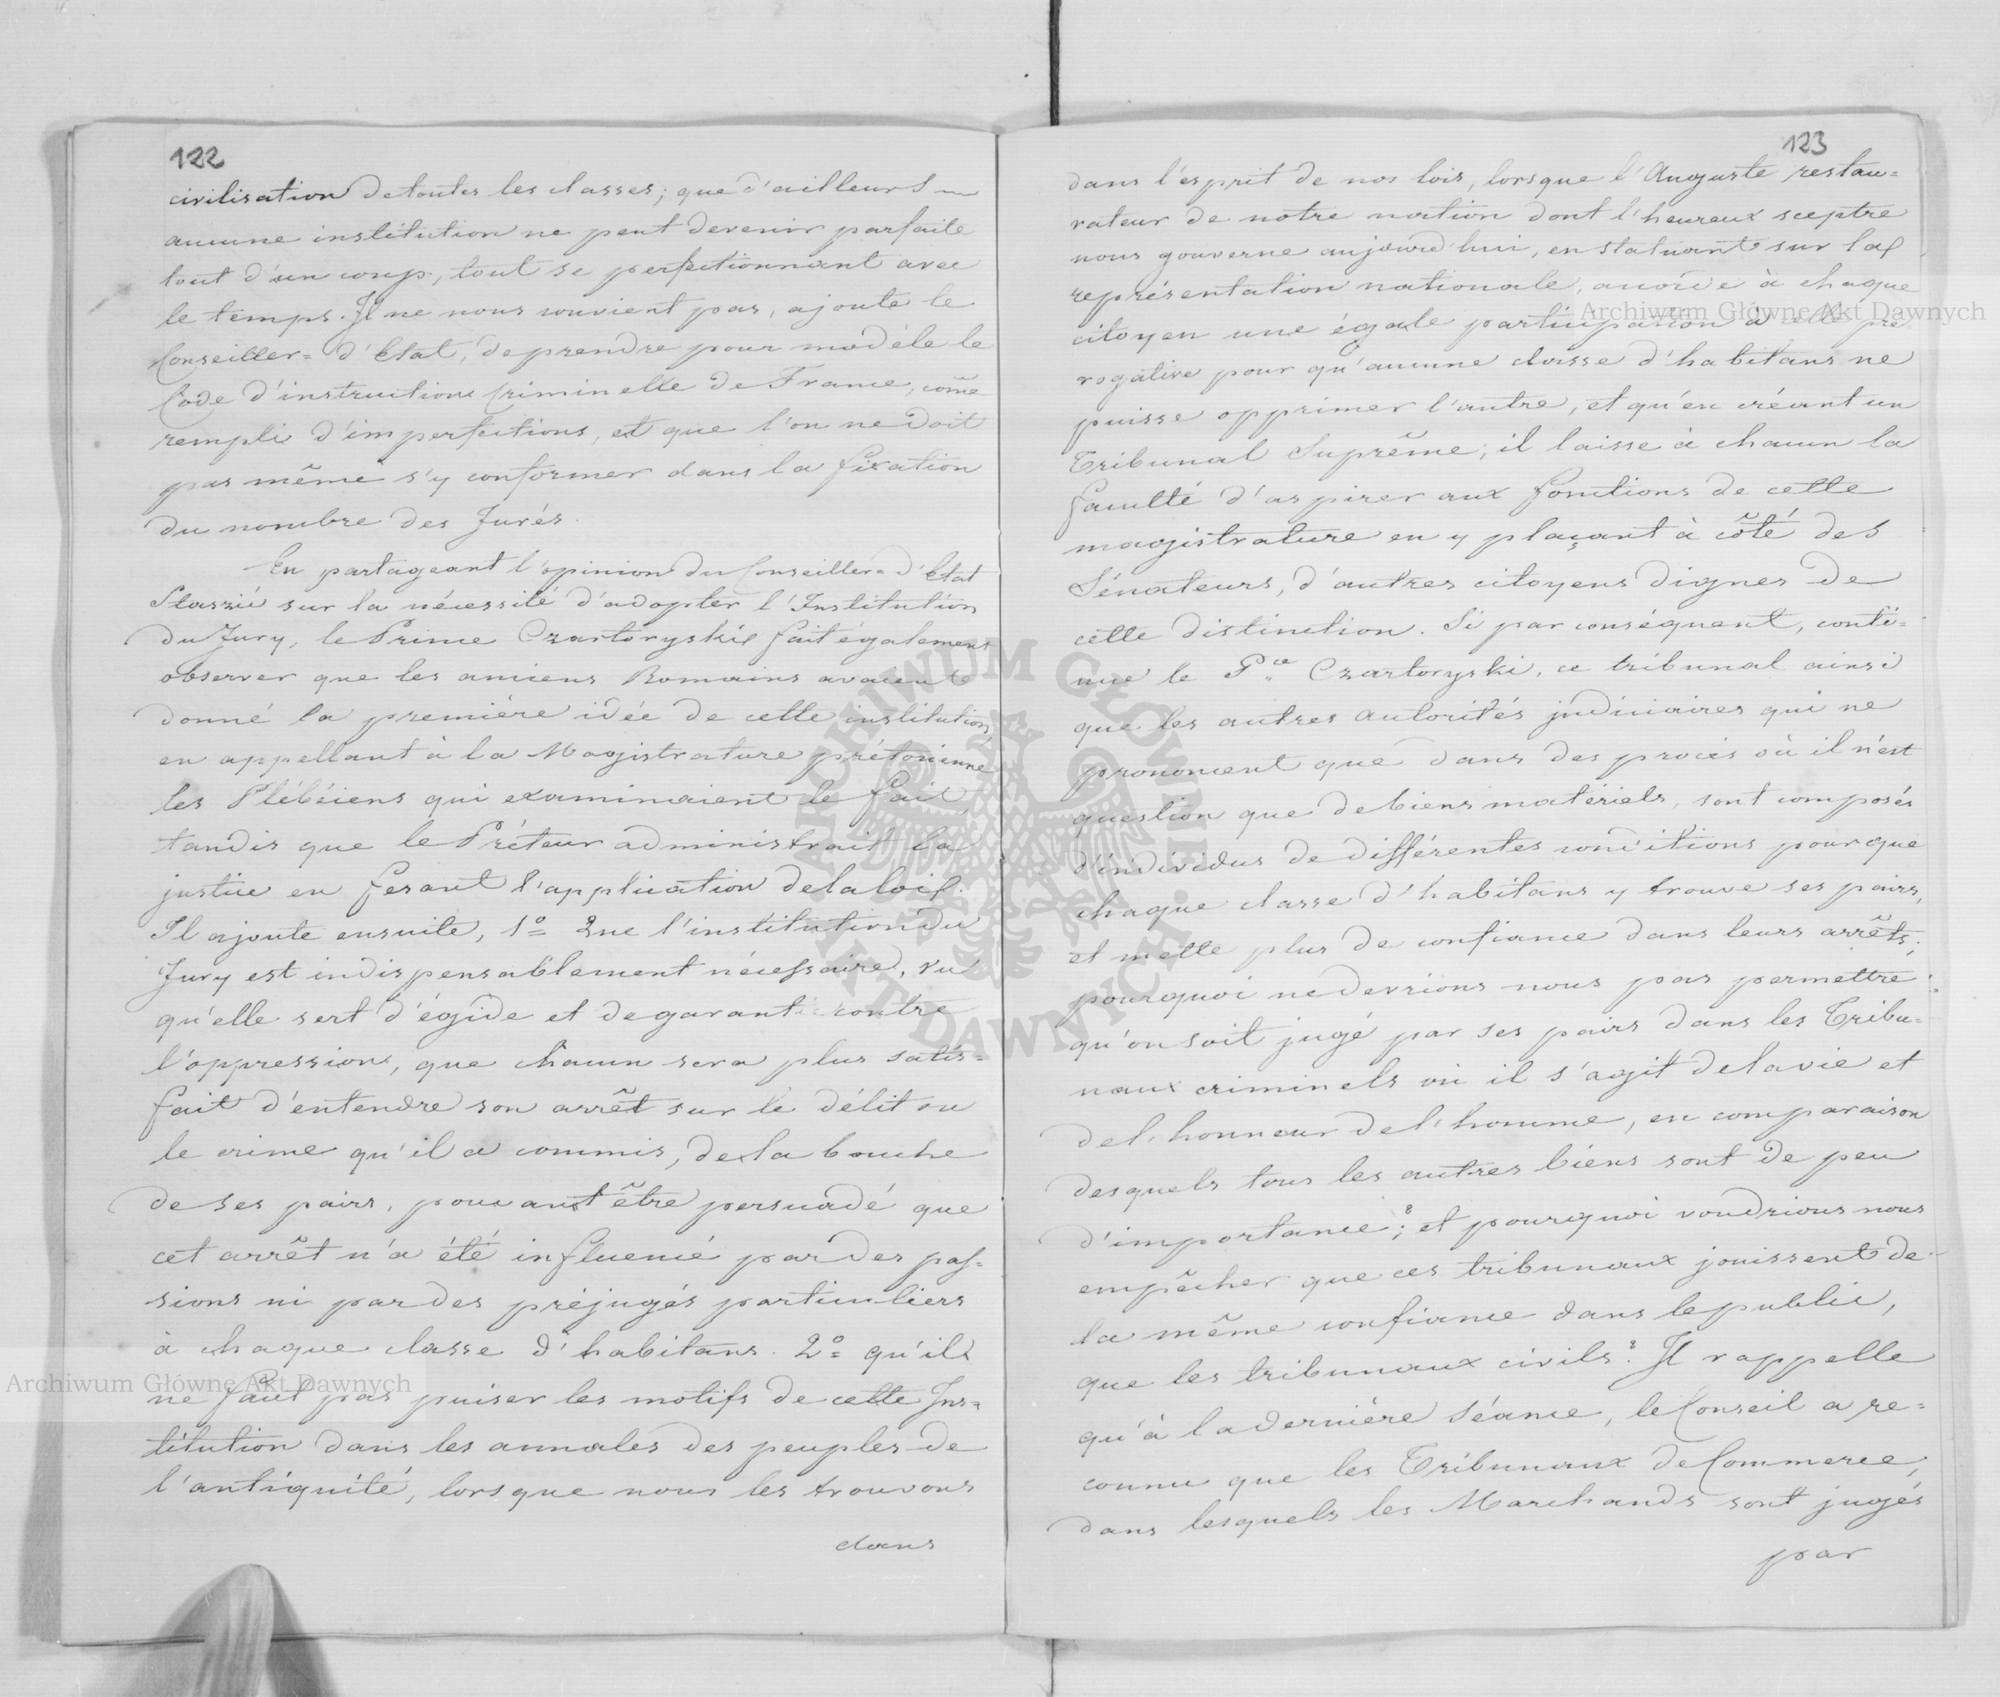 122
civilisation de toutes les classes; que d'ailleurs
aucune institution ne peut devenir parfaite
tout d'un coup, tout se perfectionnant avec
le temps. Il ne nous convient pas, ajoute le
Conseiller = d'Etat, de prendre pour modèle le
Code d'instruction Criminelle de France, come
rempli d'imperfections, et que l'on ne doit
pas même s'y conformer dans la fixation
du nombre des Jurés.
En partageant l'opinion du Conseiller = d'Etat
sur la nécessité d'adopter l'Institution
du Jury, le Prince Czartoryski fait également
observer que les anciens Romains avaient
donné la première idée de cette institution
en appellant à la Magistrature prétorienne
les Plébéiens qui examinaient le fait,
tandis que le Préteur administrait la
justice en fesant l'application de la loi.
Il ajoute ensuite, 1º = Que l'institution du
Jury est indispensablement nécessaire, vu
qu'elle sert d'égide et de garantie contre
l'oppression, que chacun sera plus satis=
fait d'entendre son arrêt sur le délit ou
le crime qu'il a commis, de la bouche
de ses pairs, pouvant être persuadé que
cet arrêt n'a été influencé par des pas=
sions ni par des préjugés particuliers
à chaque classe d'habitans. 2º = qu'il
ne faut pas puiser les motifs de cette Ins=
titution dans les annales des peuples de
l'antiquité, lorsque nous les trouvons
dans
123
dans l'esprit de nos lois, lorsque l'Auguste restau=
rateur de notre nation dont l'heureux sceptre
nous gouverne aujourd'hui, en statuant sur la
représentation nationale, accorde à chaque
citoyen une égale participation à cette pré
rogative pour qu'aucune classe d'habitans ne
puisse opprimer l'autre, et qu'en créant un
Tribunal Suprême, il laisse à chacun la
faculté d'aspirer aux fonctions de cette
magistrature en y plaçant à côté des
Sénateurs, d'autres citoyens dignes de
cette distinction. Si par conséquent, conti=
nue le Pce Czartoryski, ce tribunal ainsi
que les autres autorités judiciaires qui ne
prononcent que dans des procès où il n'est
question que de biens matériels, sont composés
d'individus de différentes conditions pour que
chaque classe d'habitans y trouve ses pairs,
et mette plus de confiance dans leurs arrêts;
pourquoi ne devrions nous pas permettre
qu'on soit jugé par ses pairs dans les Tribu=
naux criminels où il s'agit de la vie et
de l'honneur de l'homme, en comparaison
desquels tous les autres biens sont de peu
d'importance?; et pourquoi voudrions nous
empêcher que ces tribunaux jouissent de
la même confiance dans le public,
que les tribunaux civils? Il rappelle
qu'à la dernière séance, le Conseil a re=
connu que les Tribunaux de Commerce,
dans lesquels les Marchands sont jugés
par
Archiwum Główne Akt Dawnych
Archiwum Główne Akt Dawnych
ARCHIWUM GŁÓWNE AKT DAWNYCH